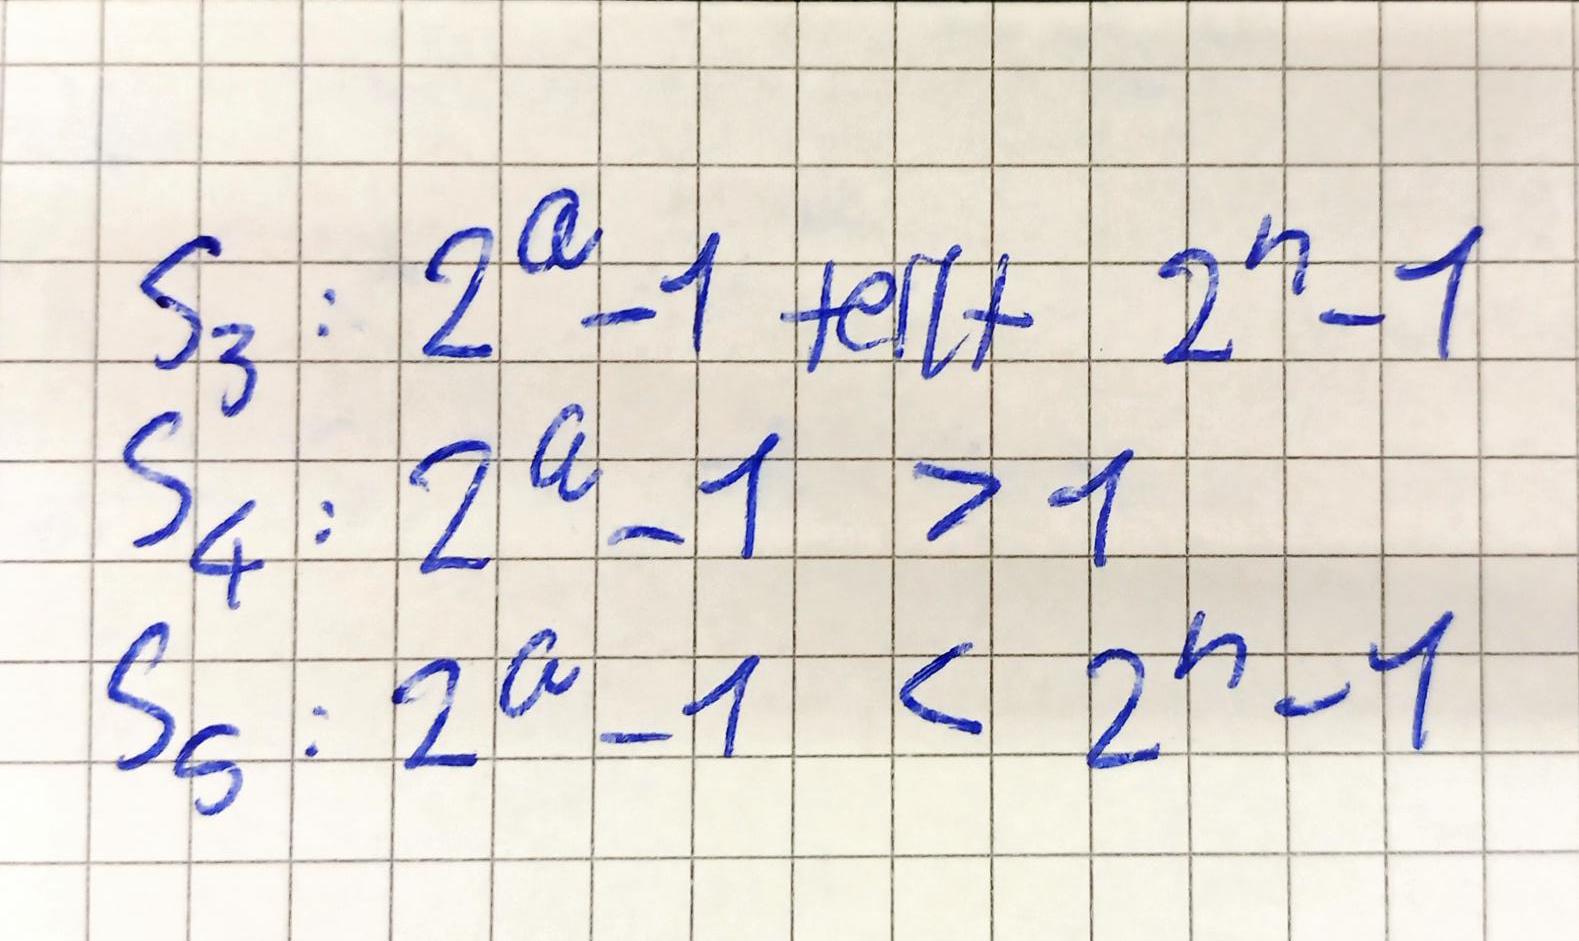 S₃ : 2ᵃ - 1 teilt 2ⁿ - 1
S₄ : 2ᵃ - 1 > 1
S₅ : 2ᵃ - 1 < 2ⁿ - 1